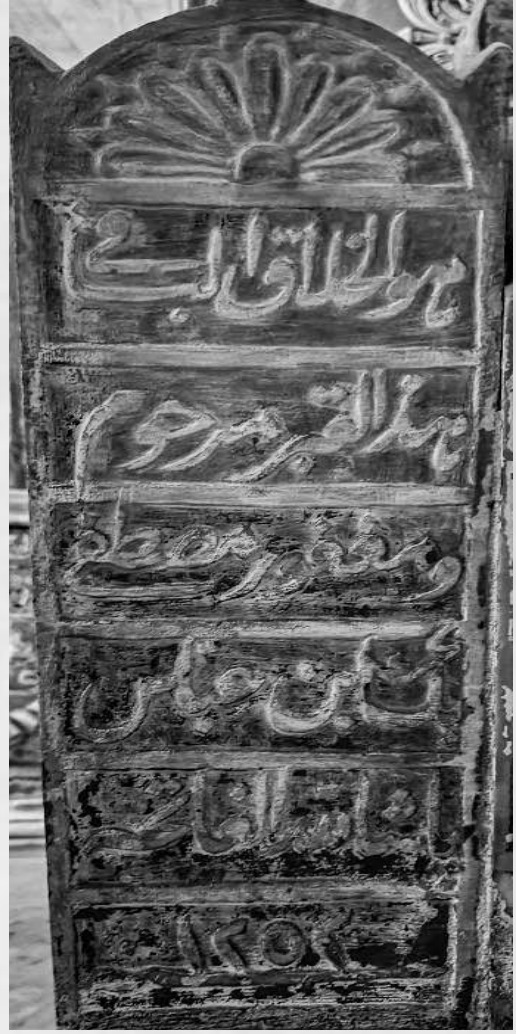 هوالخلاق الباقي
هذا القبر مرحوم
ومغفور مصطفى
بن عباس
الفاتحه
١٢٥٢